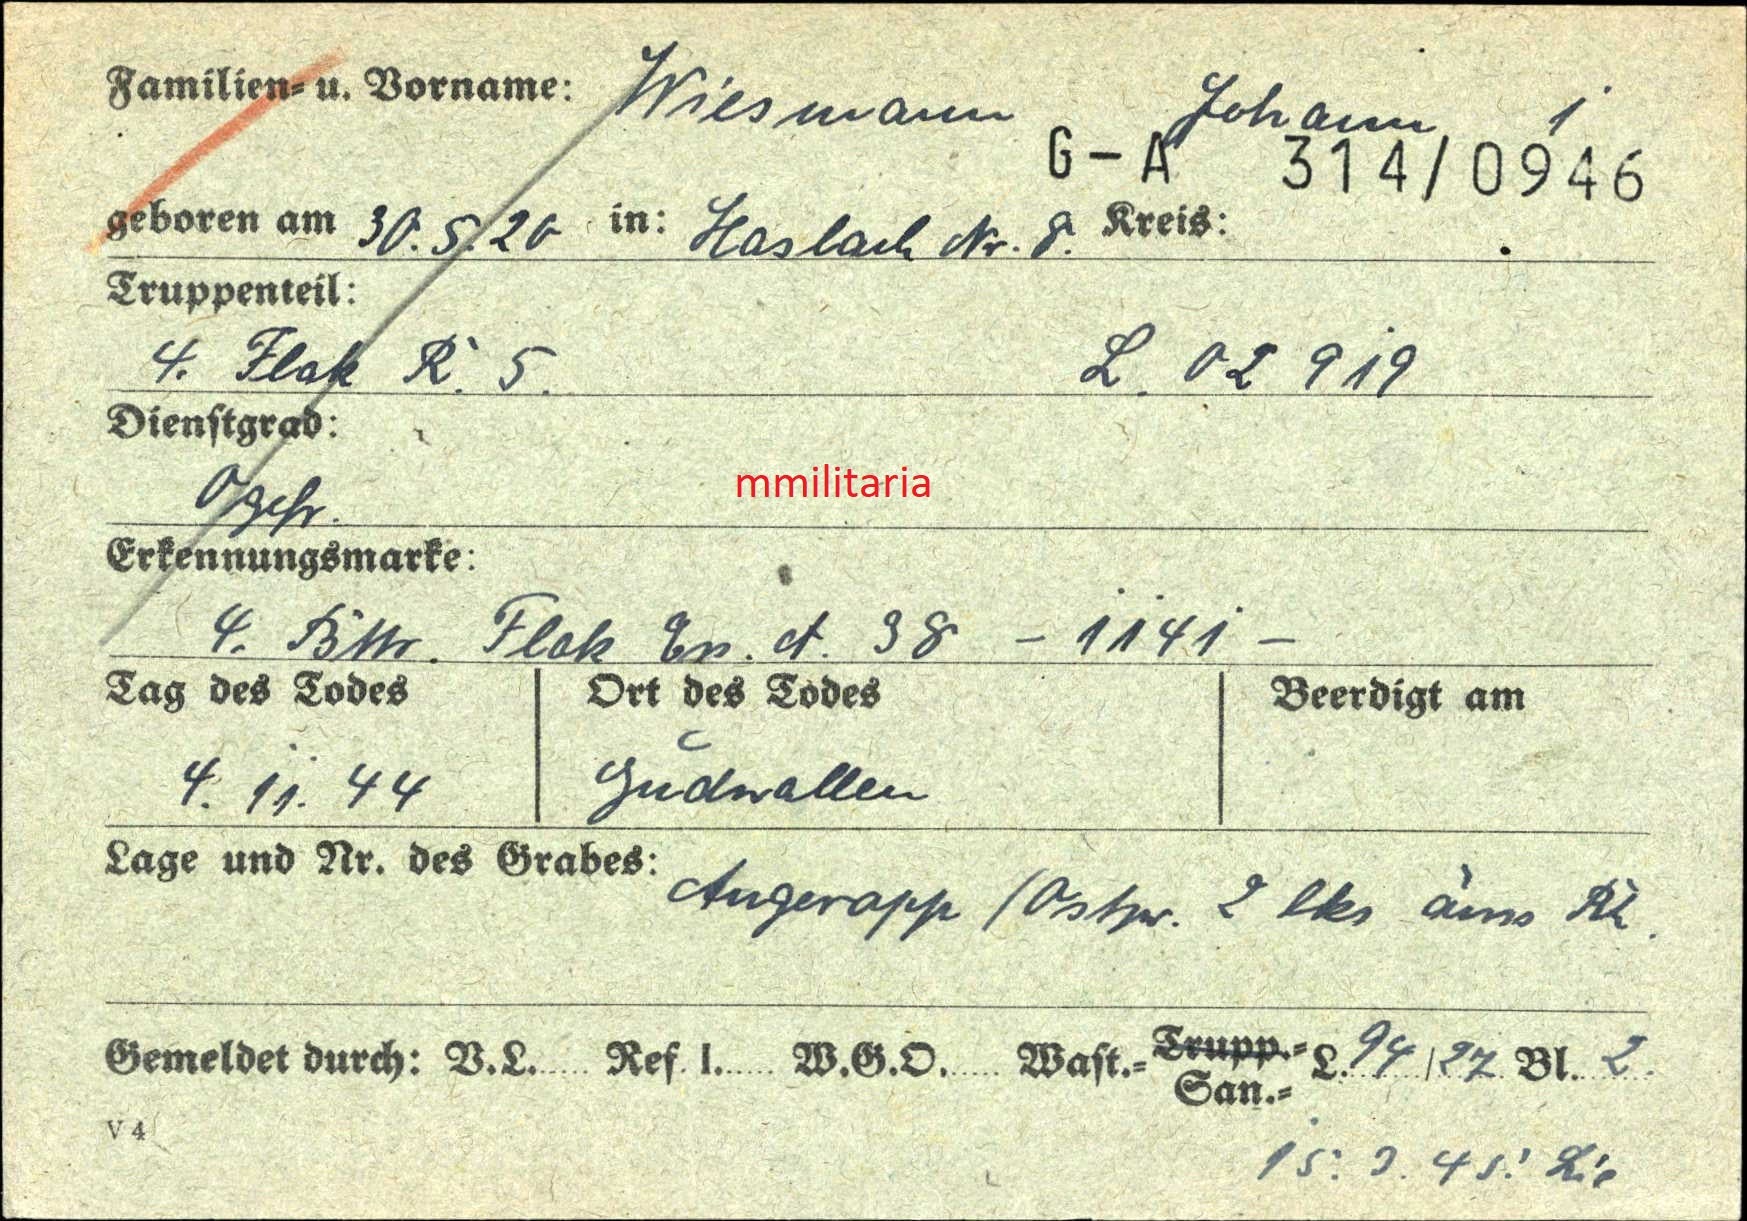 Familien- u. Vorname: Wiesmann Johann 1
G-A 314/0946
geboren am 30.5.20 in: Haslach Nr. 8. Kreis:
Truppenteil:
4. Flak R. 5. L. 02 919
Dienstgrad:
Ogefr.
mmilitaria
Erkennungsmarke:
4. Bttr. Flak Ers. A. 38 - 1141 -
Tag des Todes Ort des Todes Beerdigt am
4. 11. 44 Gudwallen
Lage und Nr. des Grabes:
Angerapp /Ostpr. 2 lks
Gemeldet durch: V.L..... Ref. I...... W.G.O..... Wast.- Trupp.- San.- L. 94/27 Bl. 2.
V 4
15. 3. 45.